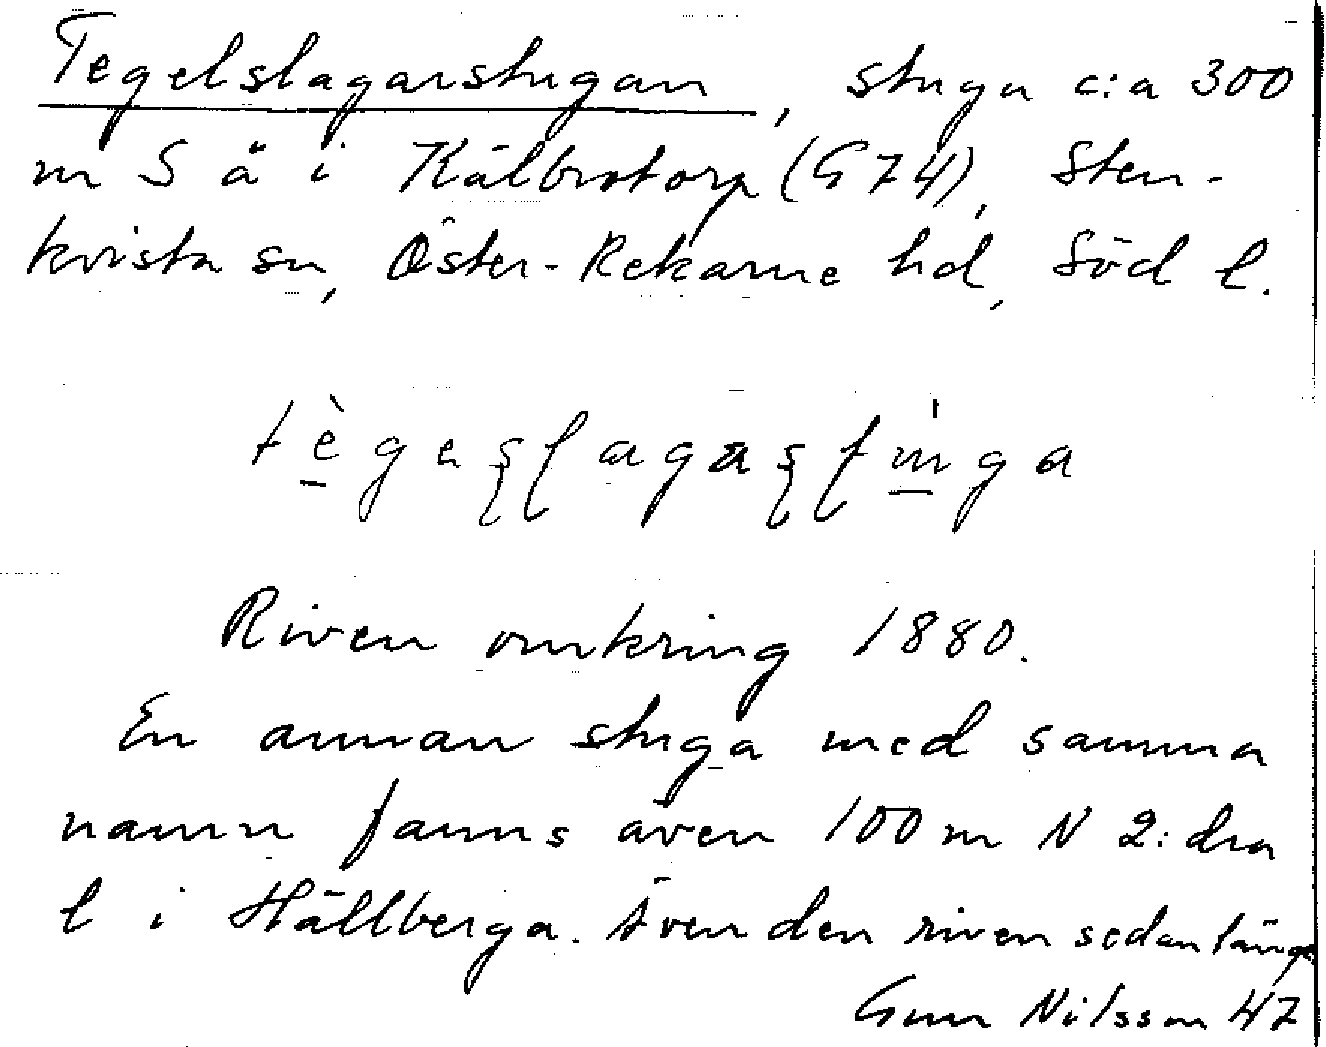 Tegelslagarstugan, stuga c:a 300
m S å i Kälbrotorp (G74), Sten-
kvista sn, Öster-Rekarne hd, Söd l.
tègeslagastùga
Riven omkring 1880.
En annan stuga med samma
namn fanns även 100 m N 2:dra
l i Hällberga. Även den riven sedan länge
Gun Nilsson 47